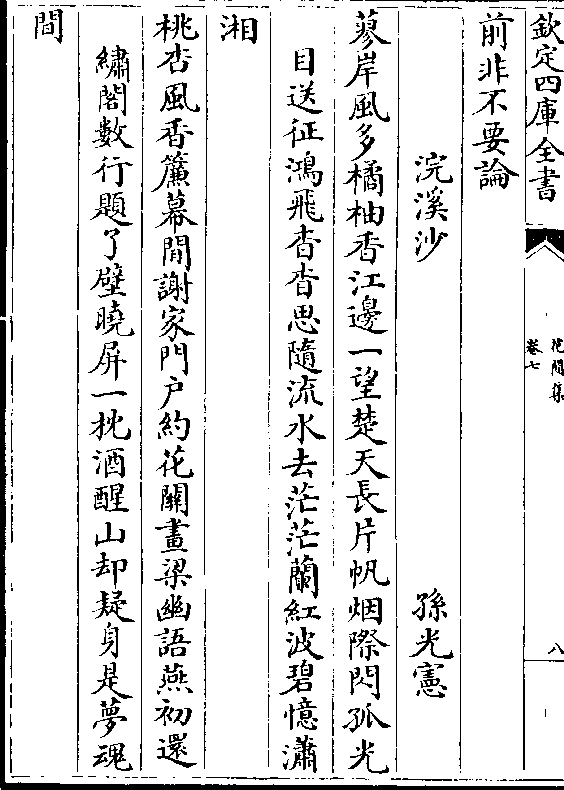 欽定四庫全書
花間集
卷七
八
前非不要論
浣溪沙
孫光憲
蓼岸風多橘柚香江邊一望楚天長片帆烟際閃孤光
目送征鴻飛杳杳思隨流水去茫茫蘭紅波碧憶瀟
湘
桃杏風香簾幕閒謝家門户約花關畫梁幽語燕初還
繡閣數行題了壁曉屏一枕酒醒山却疑身是夢魂
間